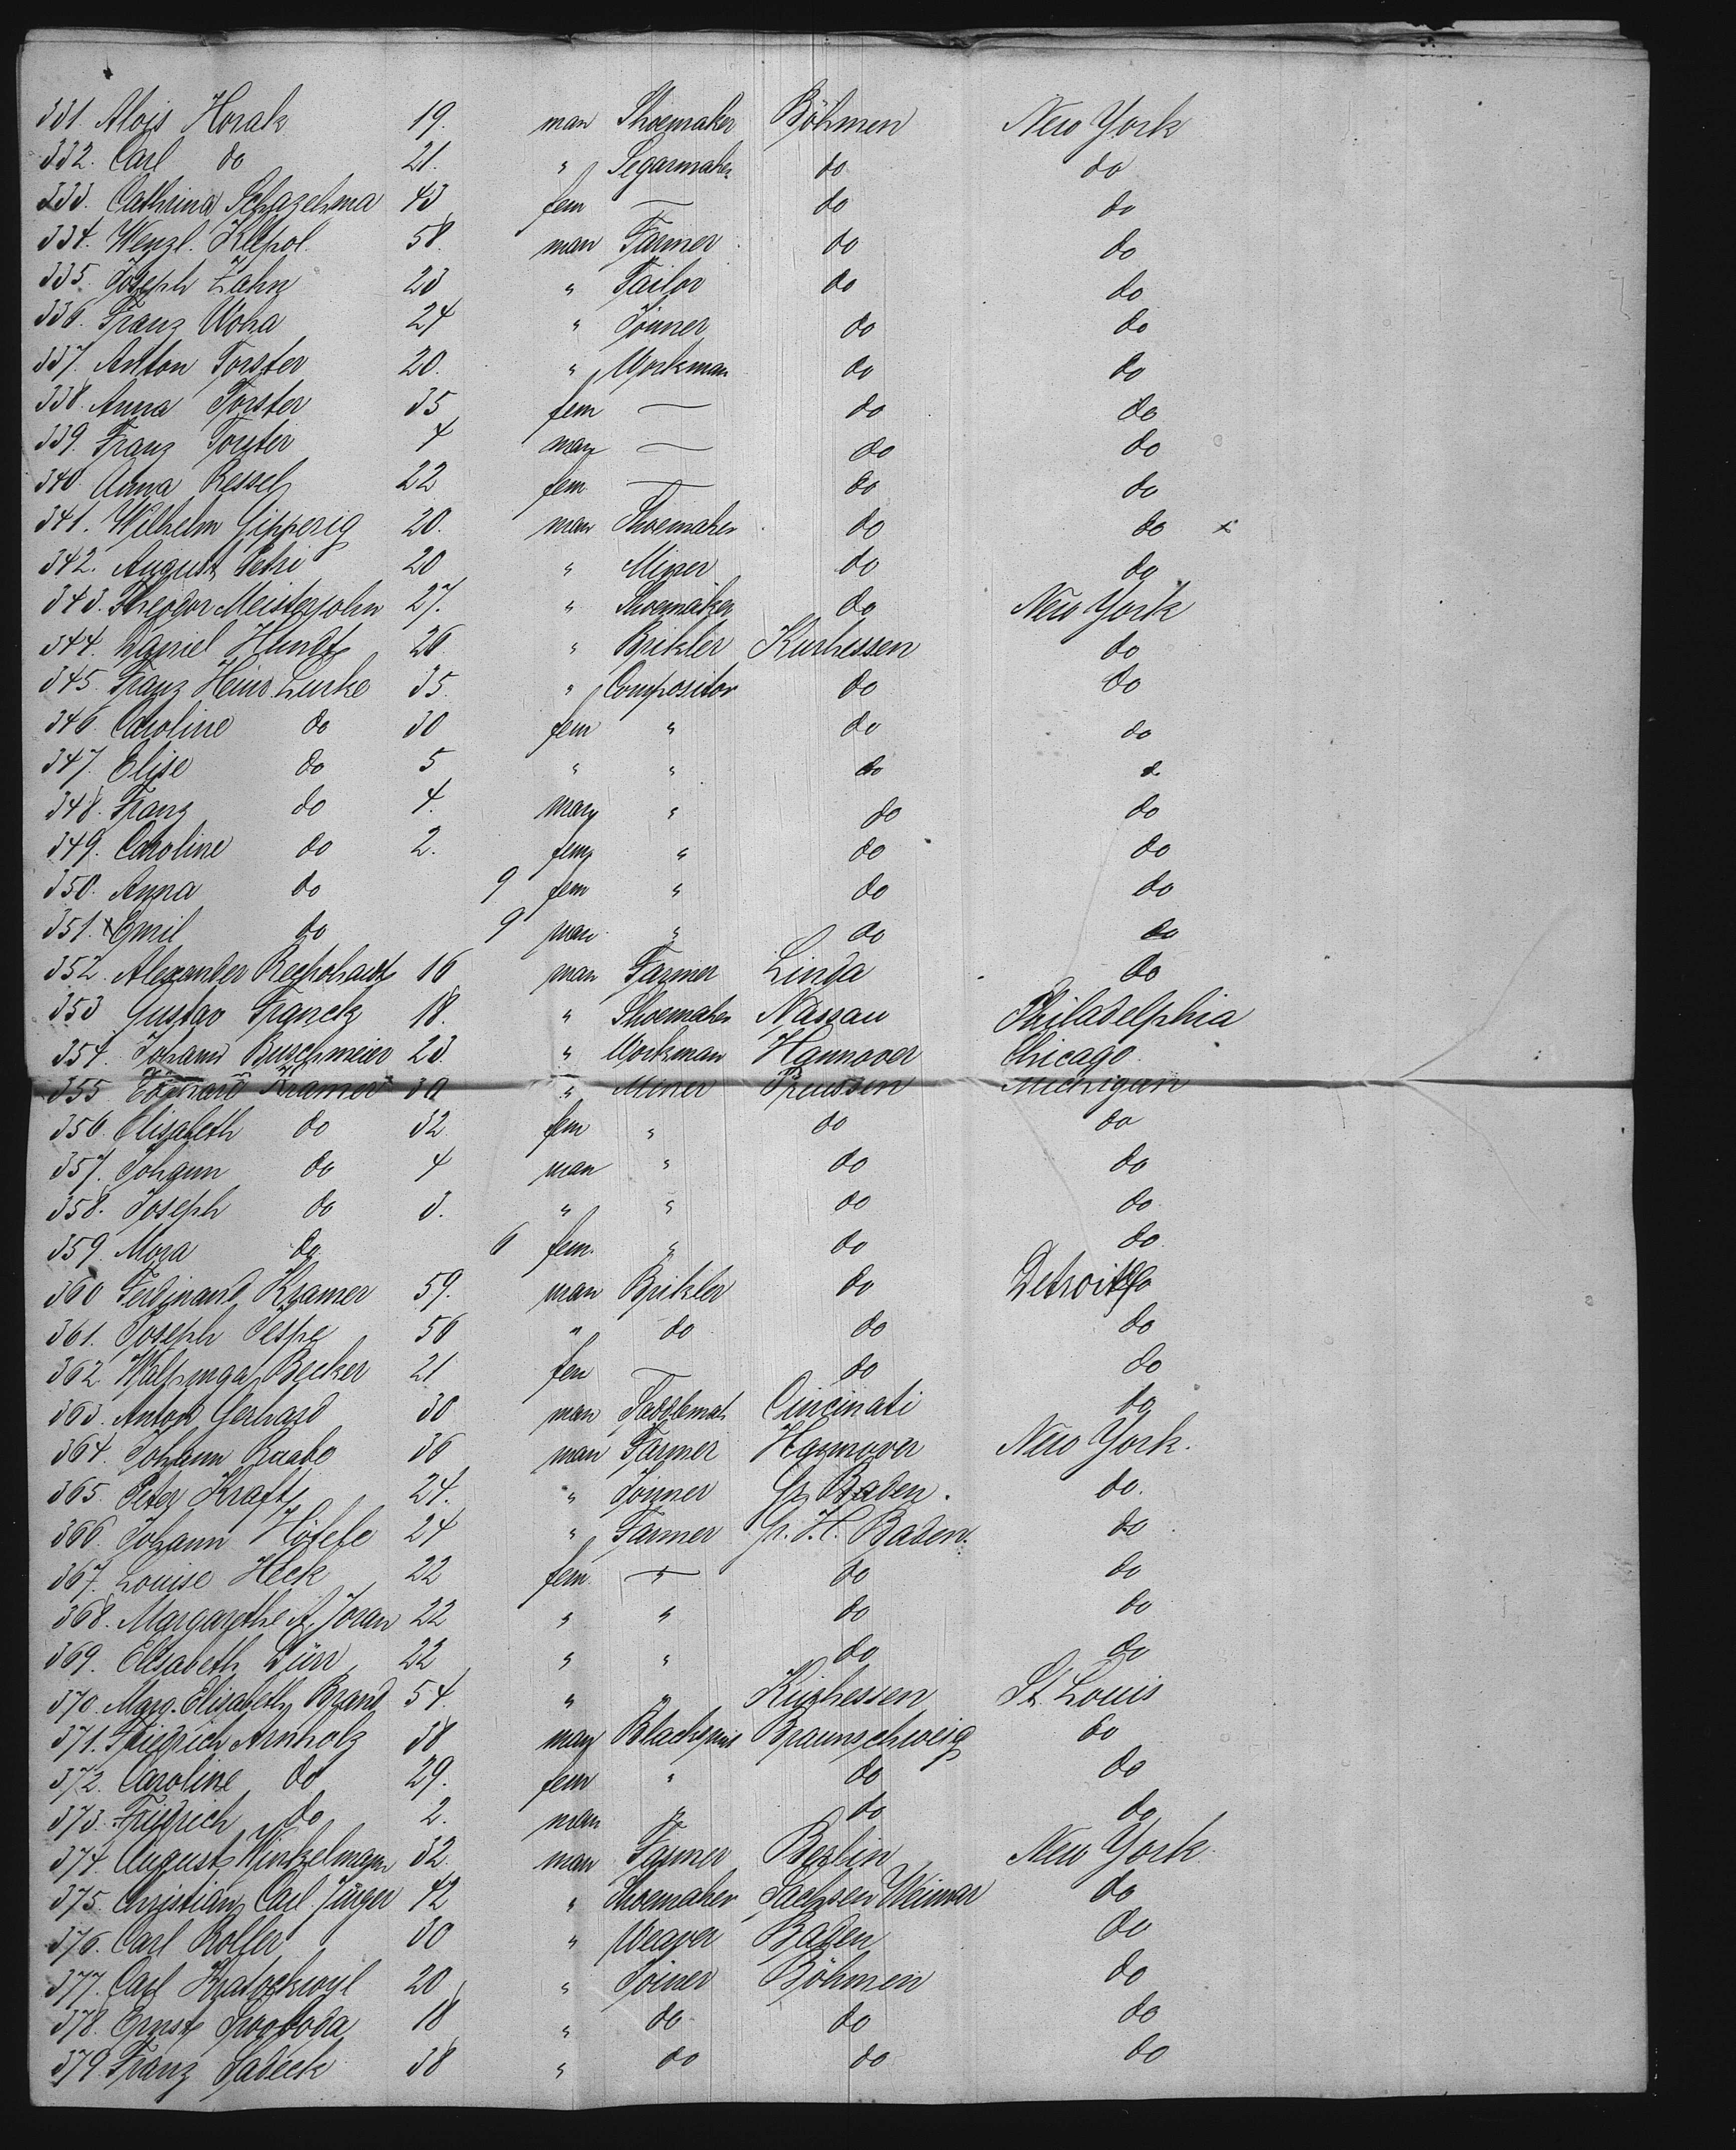 331. Alois Horak 19. man Shoemaker Böhmen New York
332. Carl do 21. " Segarmaker do do
333. Cathrina 43 fem — do do
334. Wenzl. 58. man Farmer do do
335. Joseph Zahn 23 " Tailor do do
336. Franz 24 " Joiner do do
337. Anton Forster 20. " Workman do do
338. Anna Forster 35 fem — do do
339. Franz Forster 4 man — do do
340. Anna Ressel 22 fem — do do
341. Wilhelm Gipperig 20. man Shoemaker do do x
342. August Petri 20 " Miner do do
343. Theodor Meisterjohn 27. " Shoemaker do New York
344. Daniel Hundt 26 " Brikler Kurhessen do
345. Franz Heinr. 35. " Compositor do do
346. Caroline do 30 fem " do do
347. Elise do 5 " " do do
348. Franz do 4. man " do do
349. Caroline do 2. fem " do do
350. Anna do 9 fem " do do
351. x Emil do 9 man " do do
352. Alexander 16 man Farmer Linda do
353 Gustav Franck 18. " Shoemaker Nassau Philadelphia
354. Johann Buschmeier 23. " Workman Hannover Chicago.
355 Kramer 30 " Miner Preussen Michigan
356. Elisabeth do 32 fem " do do
357. Johann do 4 man " do do
358. Joseph do 3. " " do do
359. Mora do 6 fem. " do do
360 Ferdinand Kramer 59. man Brikler do Detroit do
361. Joseph 56 " do do do
362. Becker 21 fem — do do
363. Anton Gerhard 30 man Cincinati do
364. Johann Raabe 36 man Farmer Hannover New York.
365. Peter Kraft 24. " Joiner Gr. Baden. do.
366. Johann 24 " Farmer Gr. H. Baden. do
367. Louise Heck 22 fem. — do do
368. Margarethe A. Joran 22 " " do do
369. Elisabeth Dürr 22 " " do do
370. Marg. Elisabeth Brand 54. " " Kurhessen St. Louis
371. Friedrich Arnholz 38 man Blacksmit Braunschweig do
372. Caroline do 29. fem " do do
373. Fridrich do 2. man " do do
374. August Winkelmann 32. man Farmer Berlin New York.
375. Christian Carl Jäger 42 " Shoemaker Sachsen Weimar do
376. Carl Roller 30 " Weaver Baden do
377. Carl 20 " Joiner Böhmen do
378. Ernst Swoboda 18 " do do do
379. Franz Sadeck 38 " do do do